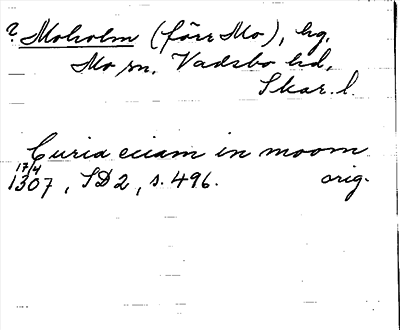 ? Moholm (förr Mo), hg.
Mo sn. Vadsbo hd,
Skar. l.
Curia eciam in moom
17/4
1307, SD 2, s. 496. orig.